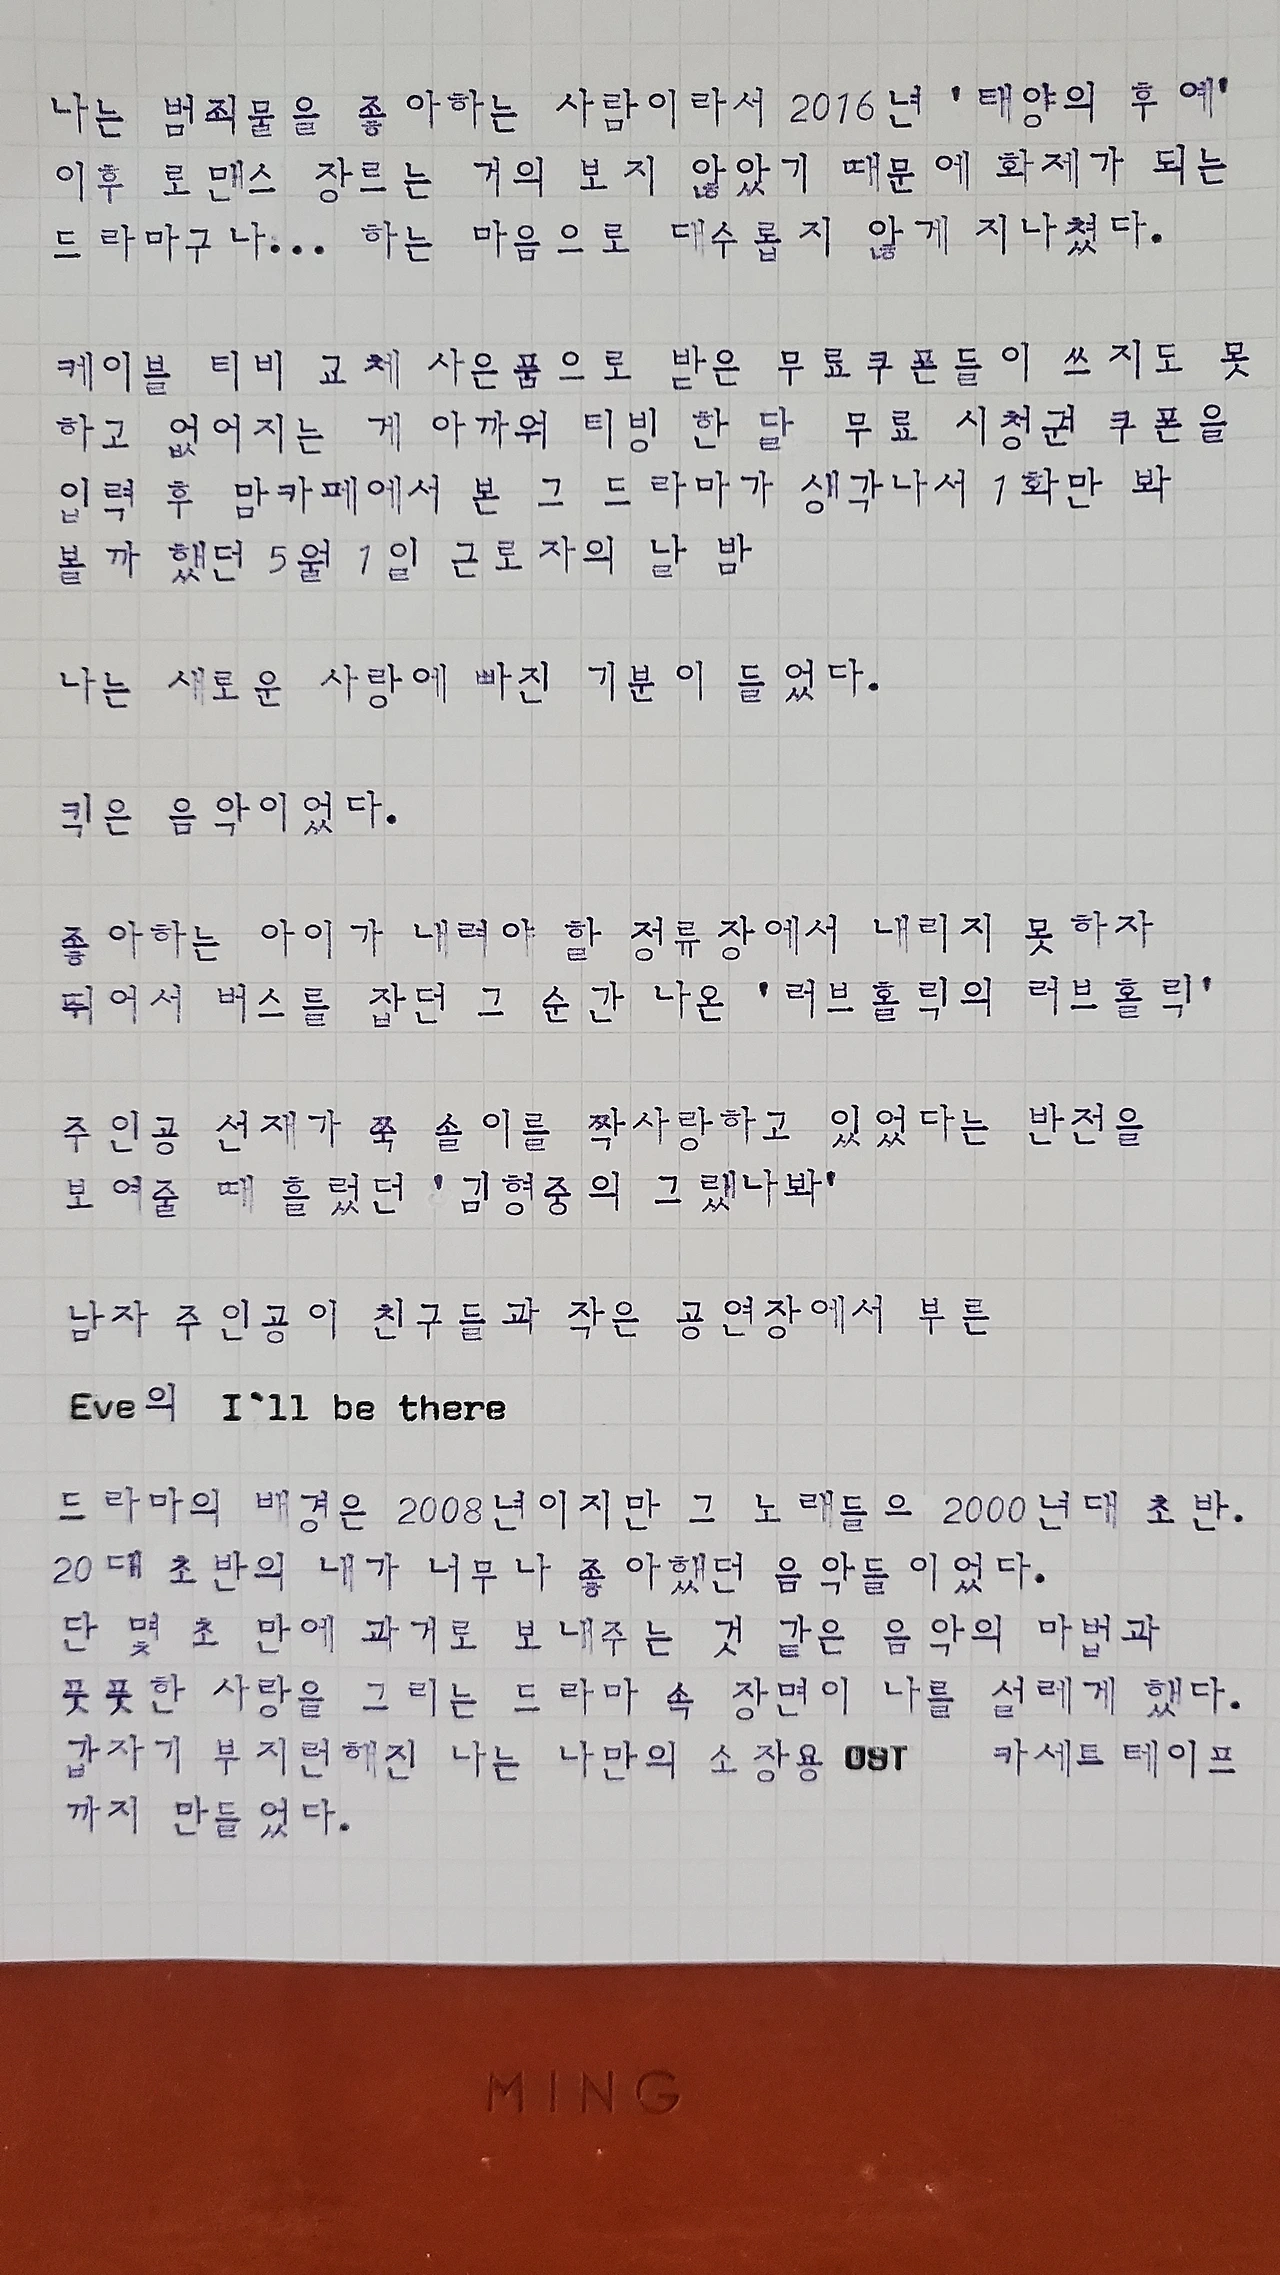 나는 범죄물을 좋아하는 사람이라서 2016년 '태양의 후예'
이후 로맨스 장르는 거의 보지 않았기 때문에 화제가 되는
드라마구나... 하는 마음으로 대수롭지 않게 지나쳤다.
케이블 티비 교체 사은품으로 받은 무료쿠폰들이 쓰지도 못
하고 없어지는 게 아까워 티빙 한 달 무료 시청권 쿠폰을
입력 후 맘카페에서 본 그 드라마가 생각나서 1화만 봐
볼까 했던 5월 1일 근로자의 날 밤
나는 새로운 사랑에 빠진 기분이 들었다.
킥은 음악이었다.
좋아하는 아이가 내려야 할 정류장에서 내리지 못하자
뛰어서 버스를 잡던 그 순간 나온 '러브홀릭의 러브홀릭'
주인공 선재가 쭉 솔이를 짝사랑하고 있었다는 반전을
보여줄 때 흘렀던 '김형중의 그랬나봐'
남자 주인공이 친구들과 작은 공연장에서 부른
Eve의 I`ll be there
드라마의 배경은 2008년이지만 그 노래들으 2000년대 초반.
20대 초반의 내가 너무나 좋아했던 음악들이었다.
단 몇 초 만에 과거로 보내주는 것 같은 음악의 마법과
풋풋한 사랑을 그리는 드라마 속 장면이 나를 설레게 했다.
갑자기 부지런해진 나는 나만의 소장용 OST 카세트테이프
까지 만들었다.
MING